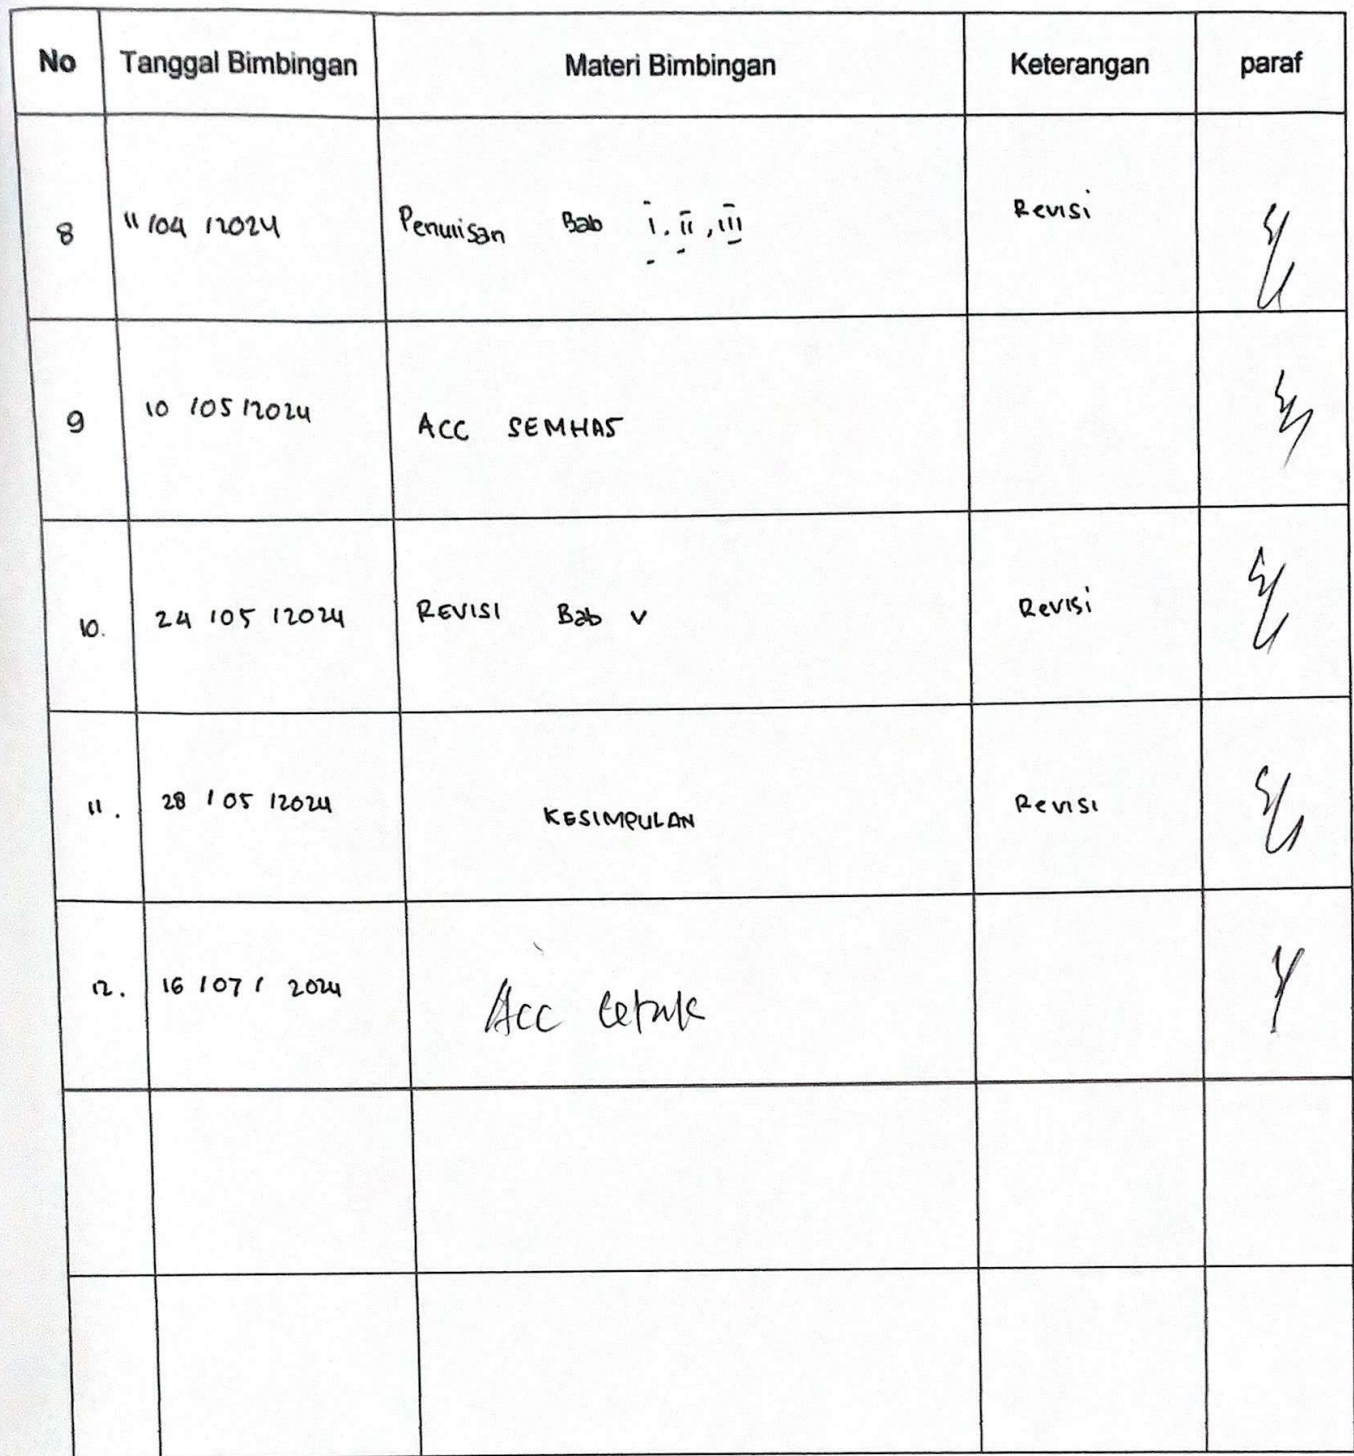 No Tanggal Bimbingan Materi Bimbingan Keterangan paraf
8 11/04/2024 Penulisan Bab I, II, III Revisi
9 10/05/2024 ACC SEMHAS
10. 24/05/2024 REVISI Bab V Revisi
11. 28/05/2024 KESIMPULAN Revisi
12. 16/07/2024 Acc Cetak